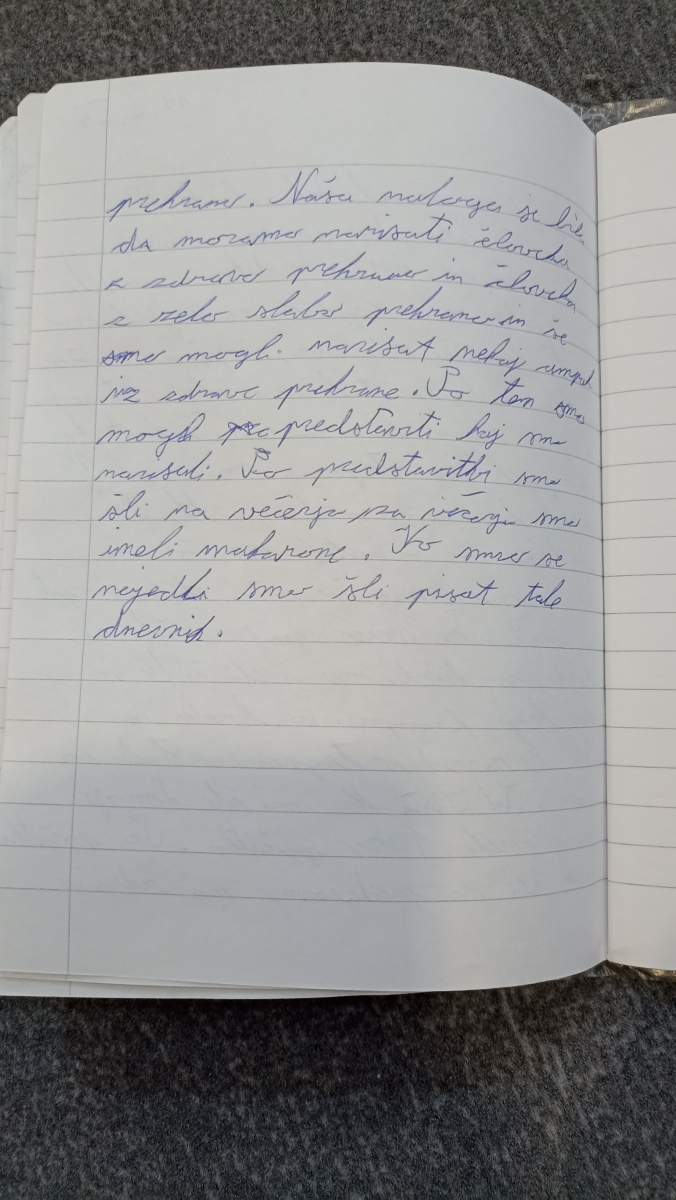 prehrano. Naša naloga je bila
da moramo narisati človeka
z zdravo prehrano in človeka
z zelo slabo prehrano in še
smo mogli narisat nekaj
iz zdrave prehrane. Po tem smo
mogli predstaviti kaj smo
narisali. Po predstavitvi smo
šli na večerjo za večerjo smo
imeli makarone. Ko smo se
najedli smo šli pisat tale
dnevnik.